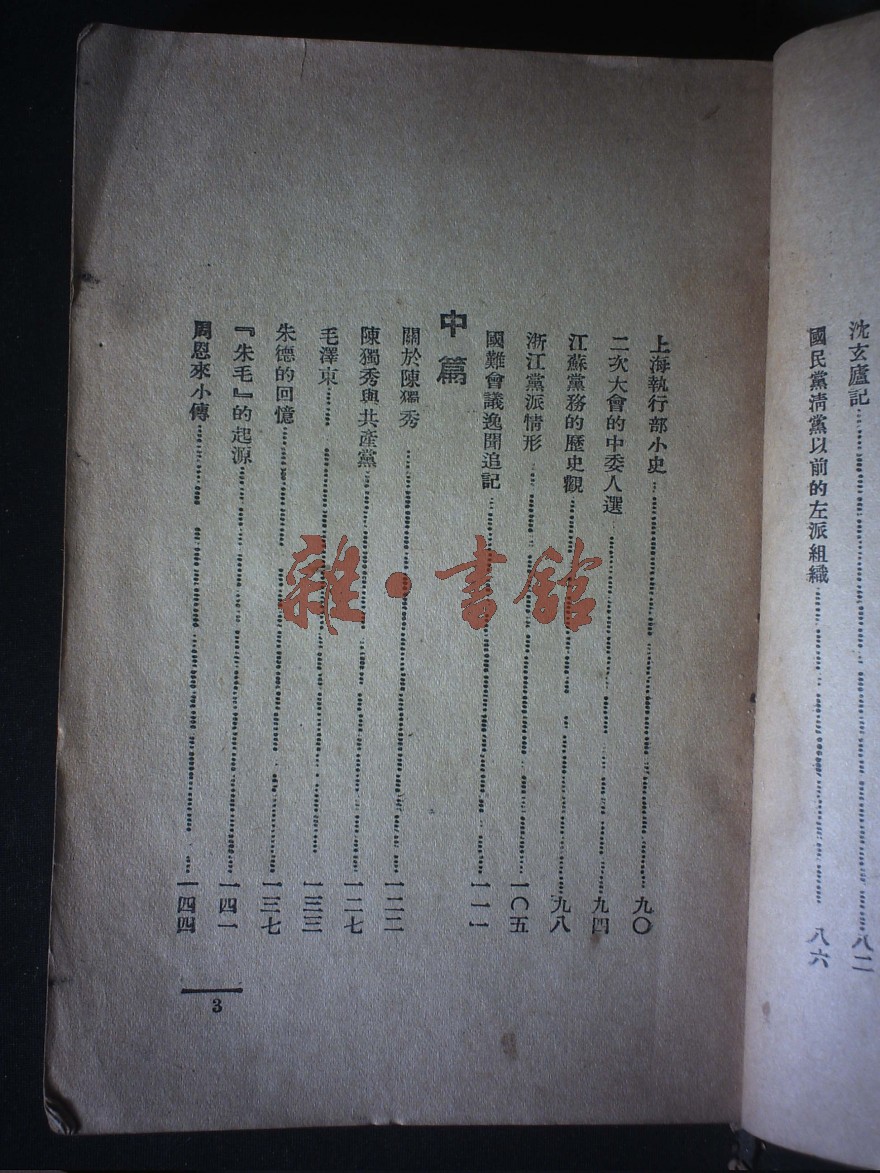 沈玄廬記 八二
國民黨淸黨以前的左派組織 八六
上海執行部小史 九〇
二次大會的中委人選 九四
江蘇黨務的歷史觀 九八
浙江黨派情形 一〇五
國難會議逸聞追記 一一一
中篇
關於陳獨秀 一二二
陳獨秀與共產黨 一二七
毛澤東 一三三
朱德的回憶 一三七
『朱毛』的起源 一四一
周恩來小傳 一四四
3
雜·書館